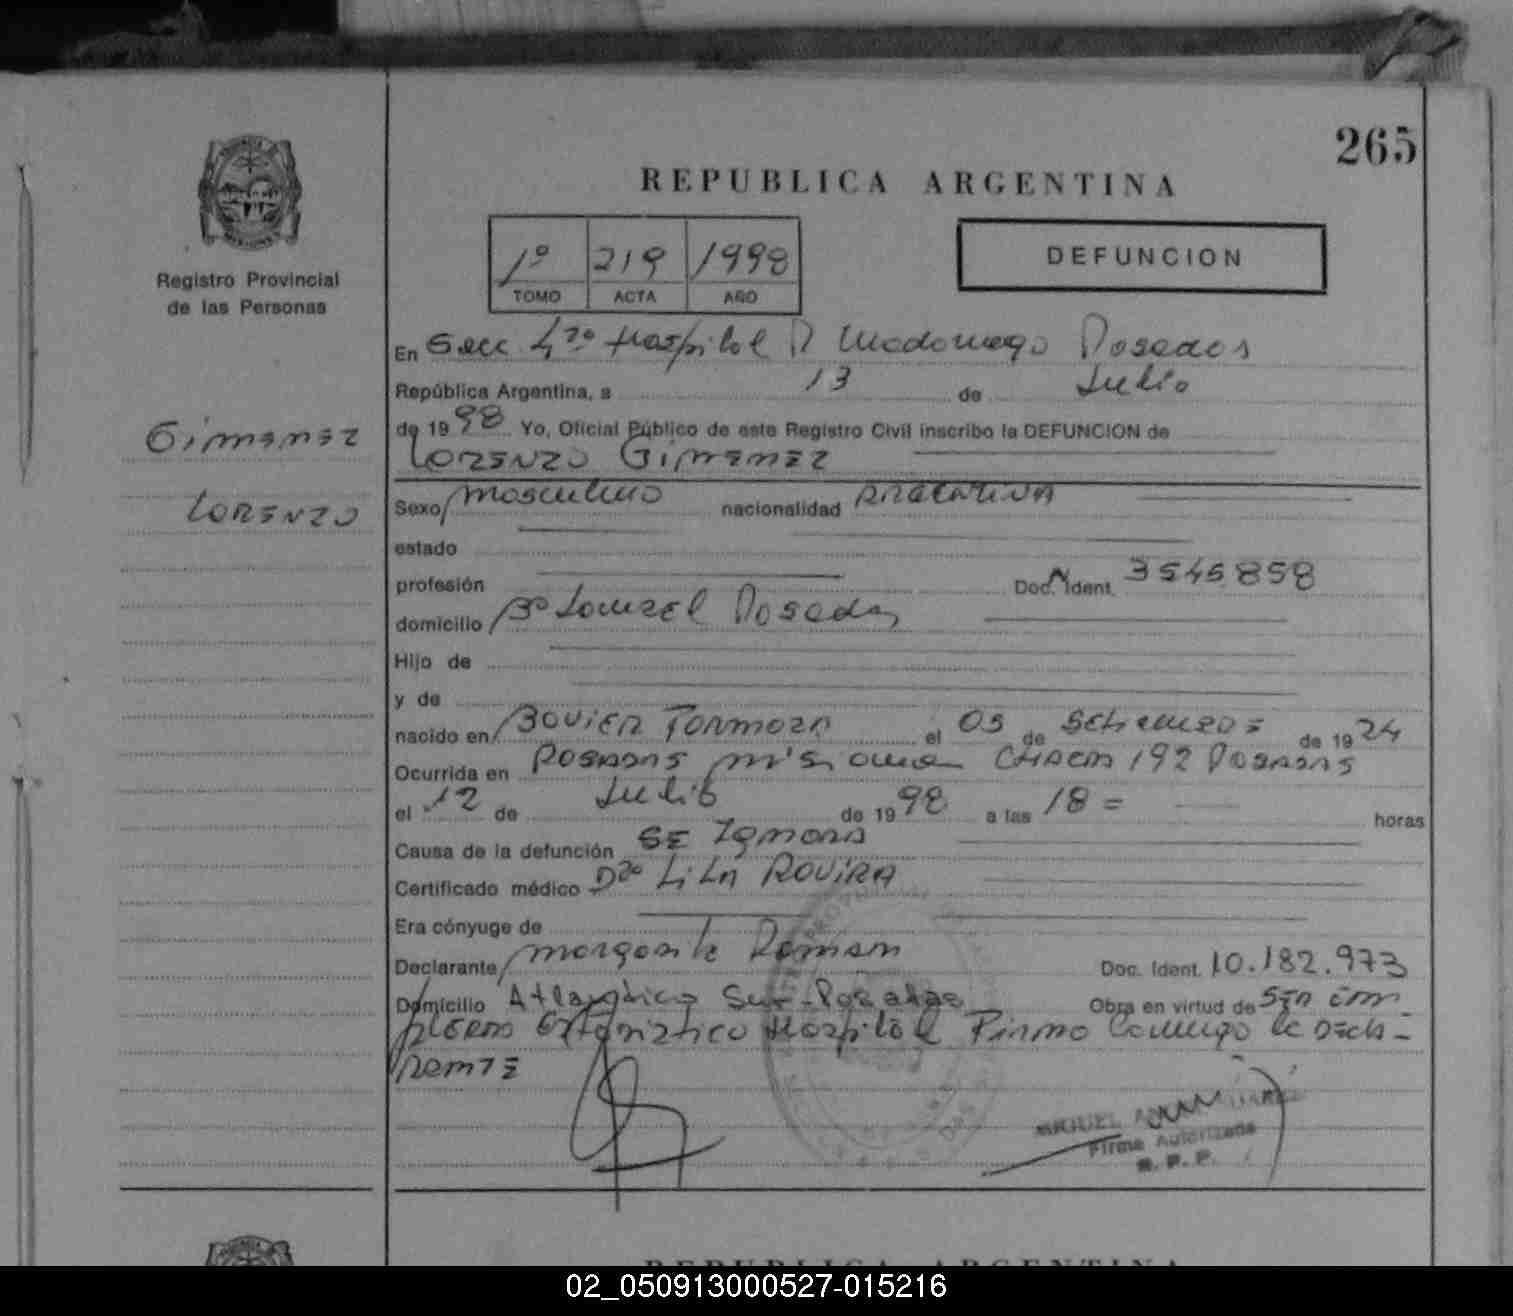 265
REPUBLICA ARGENTINA
1º 219 1998
TOMO ACTA AÑO
DEFUNCION
Registro Provincial
de las Personas
Gimenez
Lorenzo
En Secc 4ta Hospital R Madariaga Posadas
República Argentina, a 13 de Julio
de 1998 Yo, Oficial Público de este Registro Civil inscribo la DEFUNCION de
LORENZO GIMENEZ
Sexo masculino nacionalidad ARGENTINA
estado
profesión Doc. Ident. 3545858
domicilio Bº Posadas
Hijo de
y de
nacido en el 05 de Setiembre de 1924
Ocurrida en POSADAS Misiones CHACRA 192 POSADAS
el 12 de Julio de 1998 a las 18 = horas
Causa de la defunción SE IGNORA
Certificado médico Dra LILA ROVIRA
Era cónyuge de
Declarante Margarita Roman Doc. Ident. 10.182.973
Domicilio Atlantico Sur-Posadas Obra en virtud de
Hospital Firma Conmigo la Decla-
rante
MIGUEL
Firma Autorizada
R. P. P.
REPUBLICA ARGENTINA
02_050913000527-015216